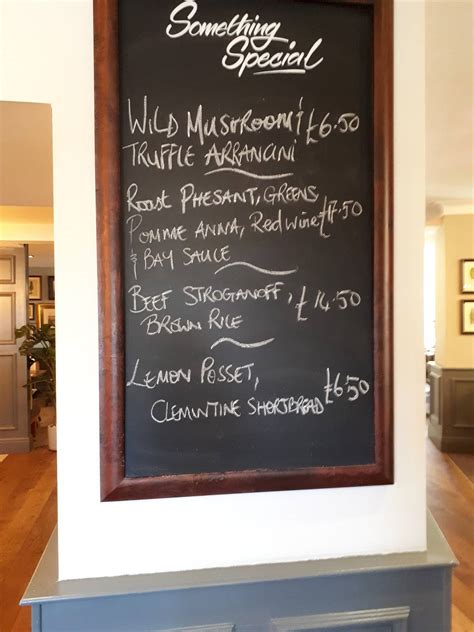 Something
Special
WILD MUSHROOM & £6.50
TRUFFLE ARRANCINI
ROAST PHESANT, GREENS,
POMME ANNA, Red wine £17.50
& BAY SAUCE
BEEF STROGANOFF, £14.50
BROWN RICE
LEMON POSSET, £6.50
CLEMINTINE SHORTBREAD